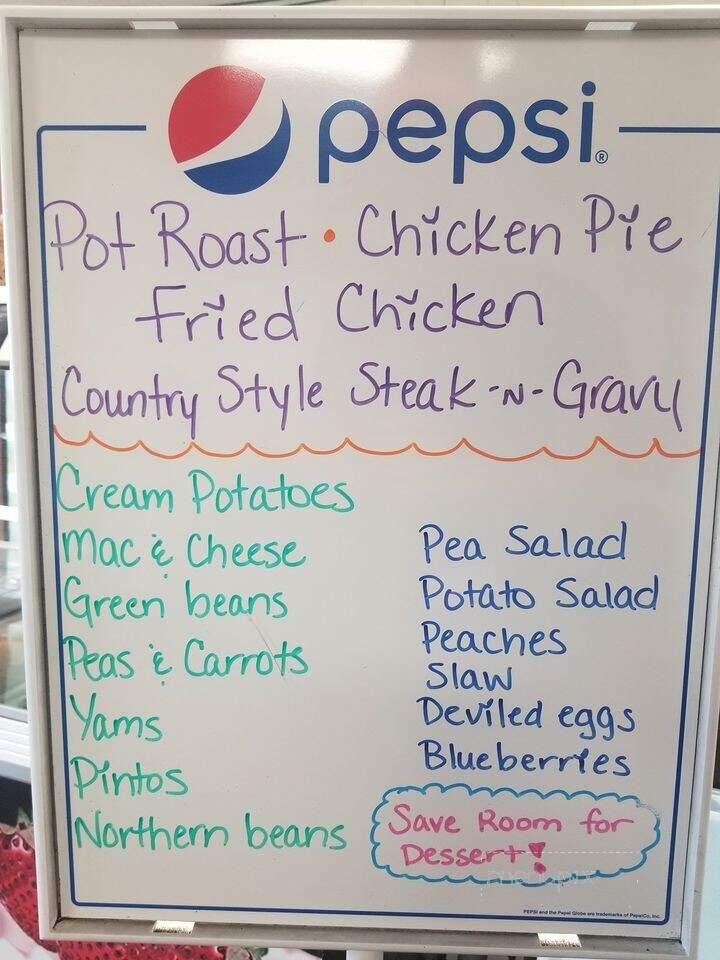 pepsi®
Pot Roast • Chicken Pie
Fried Chicken
Country Style Steak-N-Gravy
Cream Potatoes
Mac & Cheese
Green beans
Peas & Carrots
Yams
Pintos
Northern beans
Pea Salad
Potato Salad
Peaches
Slaw
Deviled eggs
Blueberries
Save Room for
Dessert!
PEPSI and the Pepsi Globe are trademarks of PepsiCo, Inc.